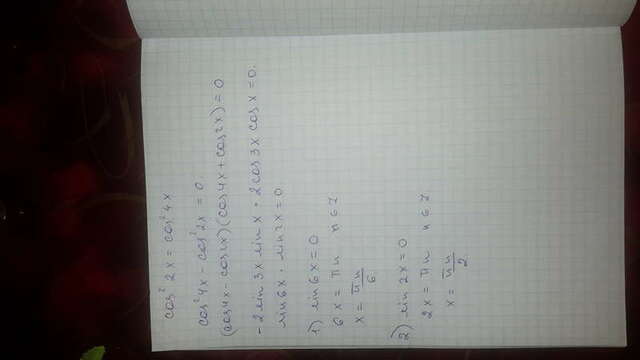 cos² 2x = cos² 4x
cos² 4x - cos² 2x = 0.
(cos 4x - cos 2x)(cos 4x + cos 2x) = 0
- 2 sin 3x sin x · 2 cos 3x cos x = 0.
sin 6x · sin 2x = 0.
1) sin 6x = 0
6x = πn n ∈ Z
x = πn/6
2) sin 2x = 0
2x = πn n ∈ Z
x = πn/2